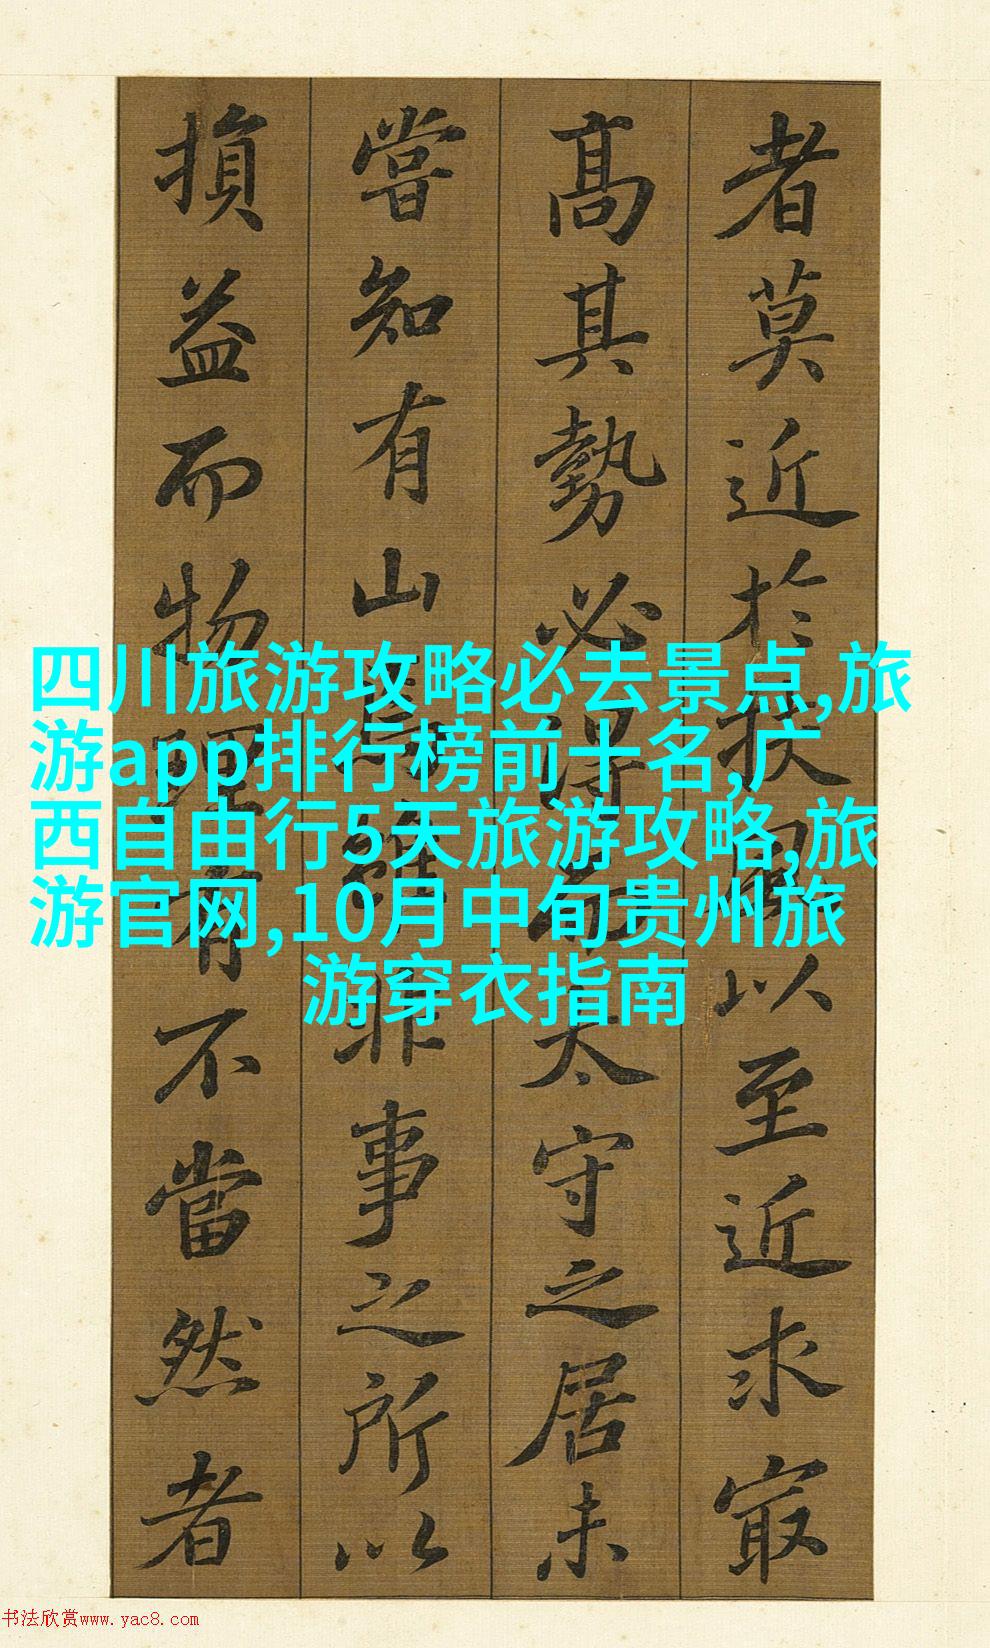 者莫近於扶風以至近求㝡
高其勢必得而太守之居未
嘗知有山焉雖非事之所以
損益而物理有不當然者
四川旅游攻略必去景点,旅
游app排行榜前十名,广
西自由行5天旅游攻略,旅
游官网,10月中旬贵州旅
游穿衣指南
书法欣赏www.yac8.com